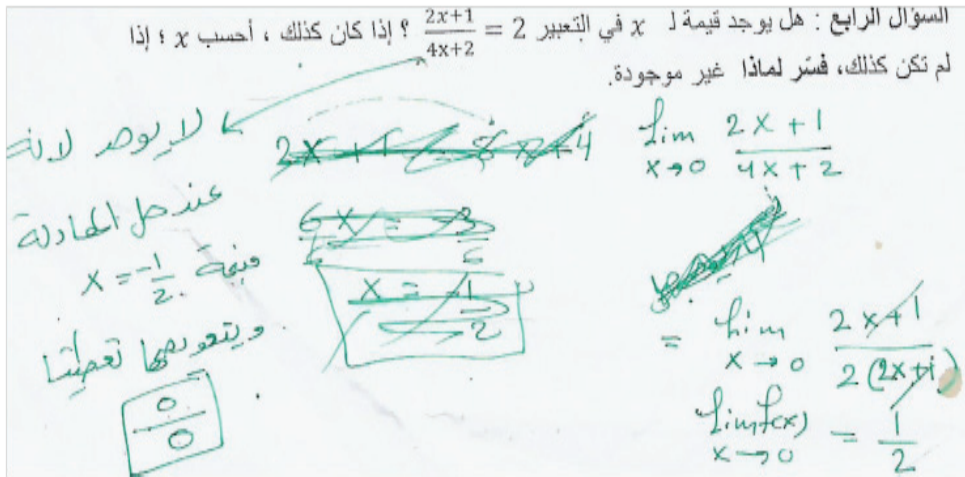 السؤال الرابع : هل يوجد قيمة لـ x في التعبير 2 = \frac{2x+1}{4x+2} ؟ إذا كان كذلك ، أحسب x ؛ إذا
لم تكن كذلك، فسّر لماذا غير موجودة.
لا يوجد لانه
عند حل المعادلة
قيمة x = \frac{-1}{2}
وبتعويضها تعطينا
\frac{0}{0}
2x + 1 = 8x + 4
6x = -3
x = \frac{-1}{2}
\lim_{x→0} \frac{2x+1}{4x+2}
= \lim_{x→0} \frac{2x+1}{2(2x+1)}
\lim_{x→0} f(x) = \frac{1}{2}